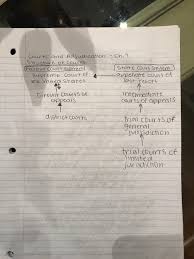 Courts and Adjudication - Ch. 9
Structure of Courts
Federal Court System
State Court System
Supreme Court of
the United States
supreme court of
last resort
Circuit Courts of
appeals
intermediate
courts of appeals
district courts
trial courts of
general
jurisdiction
trial courts of
limited
jurisdiction